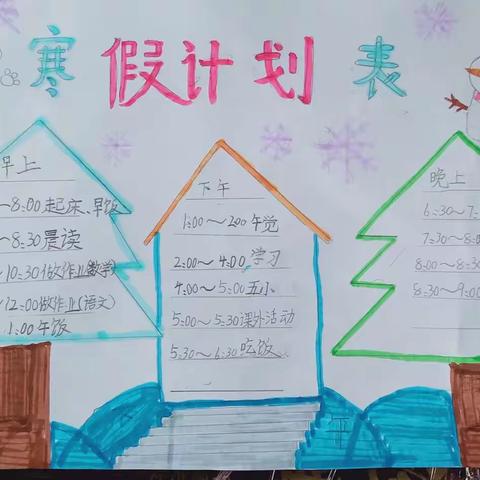 寒假计划表
早上
～8:00起床、早饭
～8:30晨读
～10:30做作业(数学)
～12:00做作业(语文)
1:00午饭
下午
1:00～2:00午觉
2:00～4:00学习
4:00～5:00五小
5:00～5:30课外活动
5:30～6:30吃饭
晚上
6:30～7:
7:30～8:0
8:00～8:30
8:30～9:00